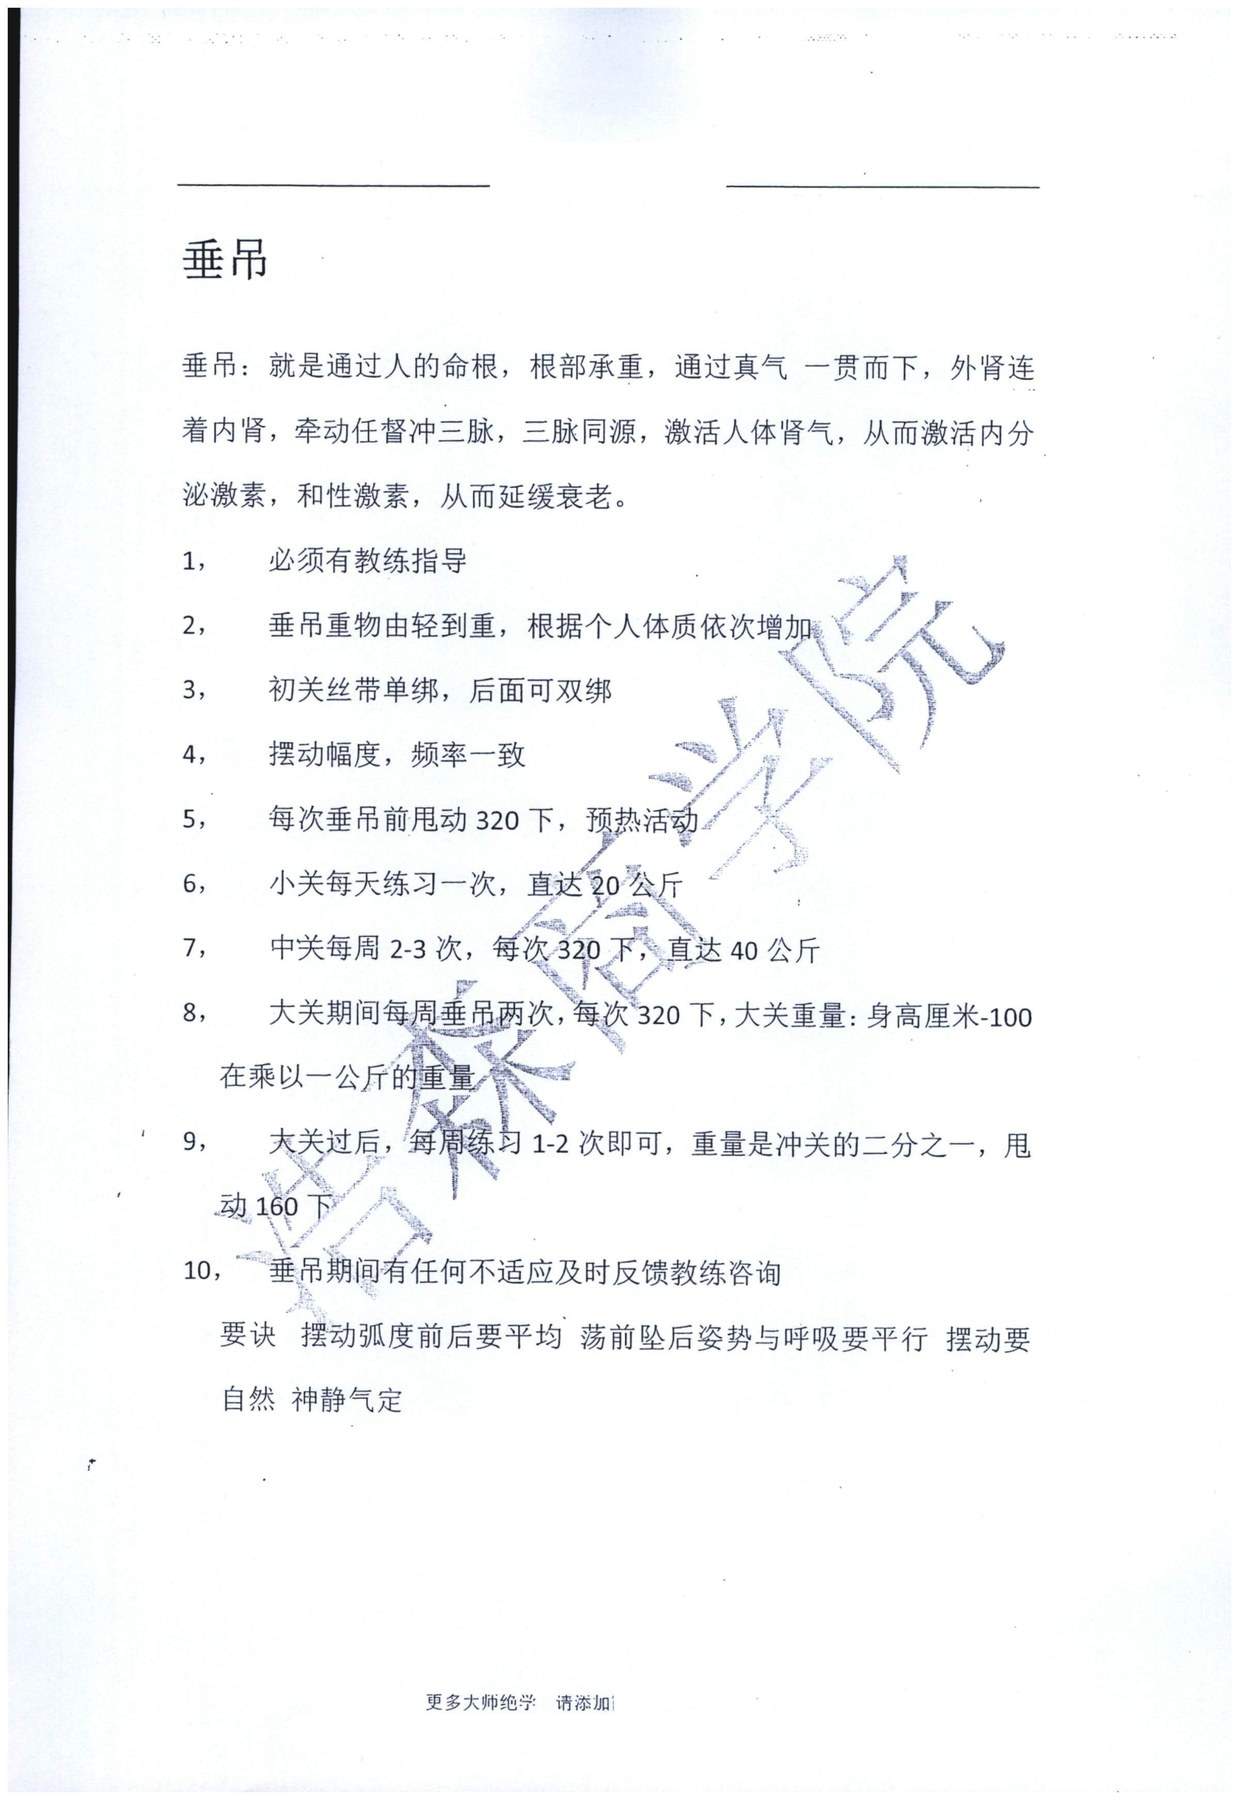 垂吊
垂吊：就是通过人的命根，根部承重，通过真气 一贯而下，外肾连
着内肾，牵动任督冲三脉，三脉同源，激活人体肾气，从而激活内分
泌激素，和性激素，从而延缓衰老。
1， 必须有教练指导
2， 垂吊重物由轻到重，根据个人体质依次增加
3， 初关丝带单绑，后面可双绑
4， 摆动幅度，频率一致
5， 每次垂吊前甩动 320 下，预热活动
6， 小关每天练习一次，直达 20 公斤
7， 中关每周 2-3 次，每次 320 下，直达 40 公斤
8， 大关期间每周垂吊两次，每次 320 下，大关重量：身高厘米-100
在乘以一公斤的重量
9， 大关过后，每周练习 1-2 次即可，重量是冲关的二分之一，甩
动 160 下
10， 垂吊期间有任何不适应及时反馈教练咨询
要诀 摆动弧度前后要平均 荡前坠后姿势与呼吸要平行 摆动要
自然 神静气定
浩森商学院
更多大师绝学 请添加